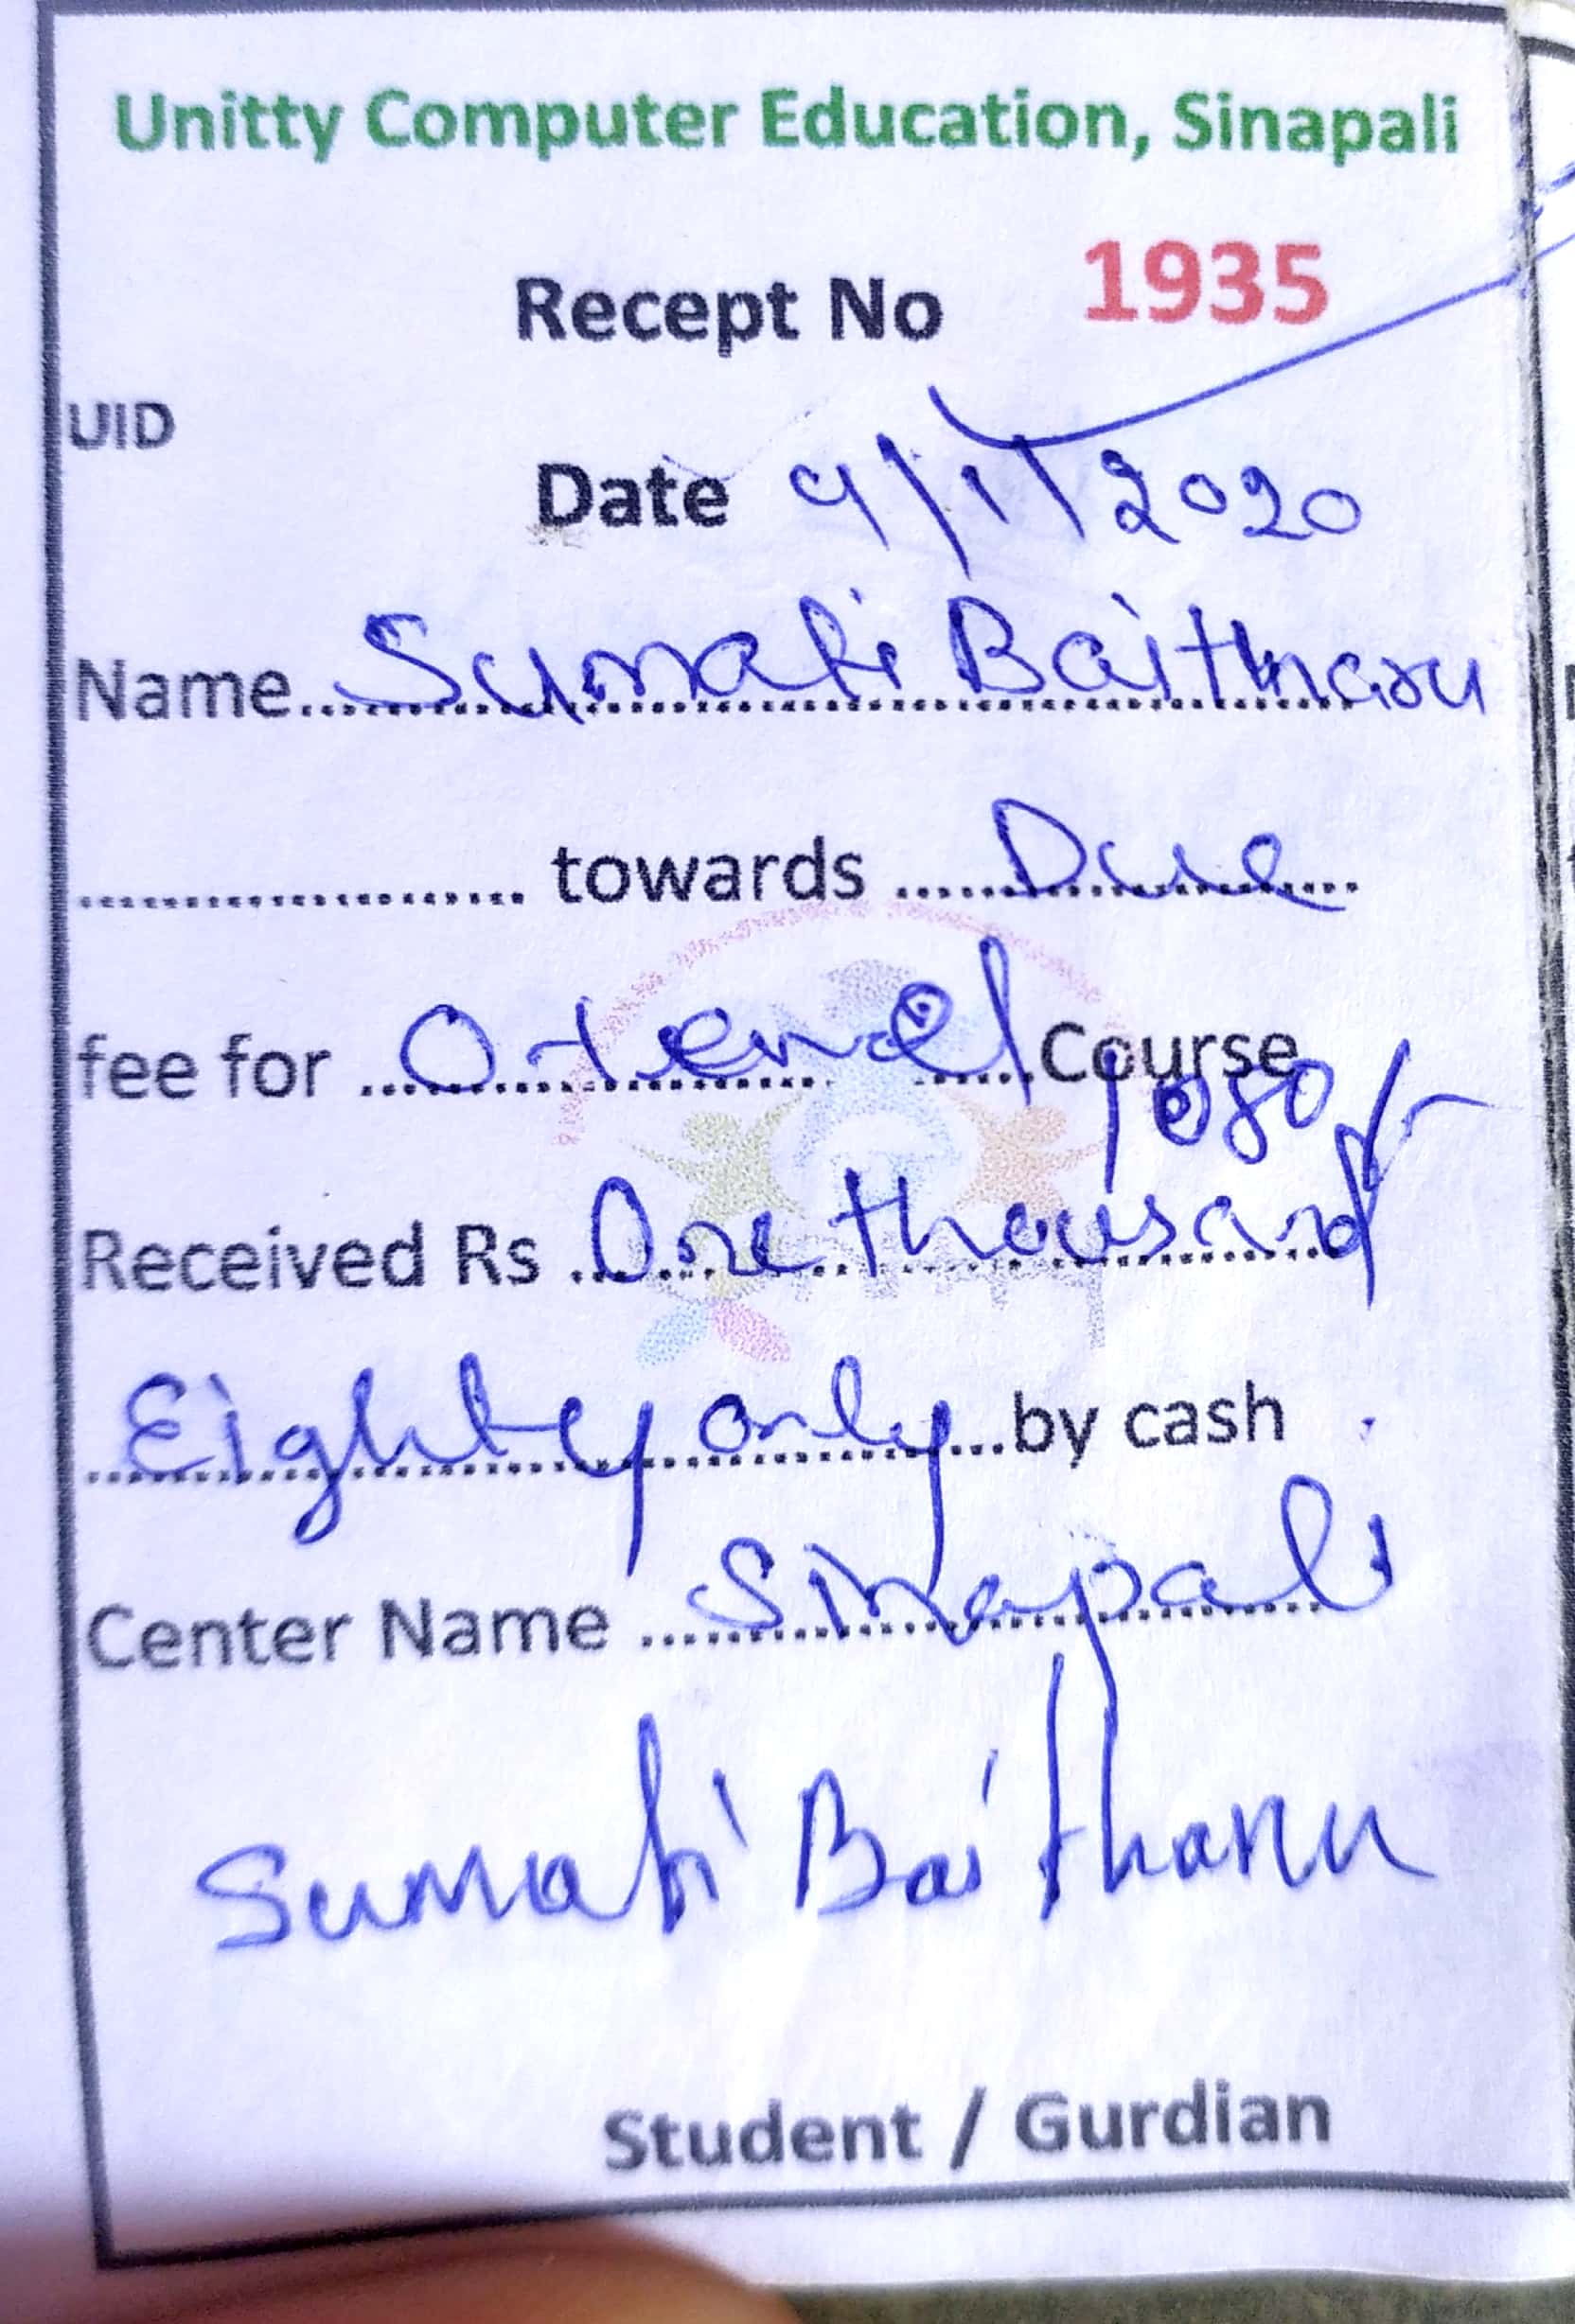 Unitty Computer Education, Sinapali
Recept No 1935
UID
Date 9/1/2020
Name Sumati Baitharu
towards Due
fee for Course
1080/-
Received Rs One thousand
Eighty only by cash
Center Name Sinapali
Sumati Baitharu
Student / Gurdian